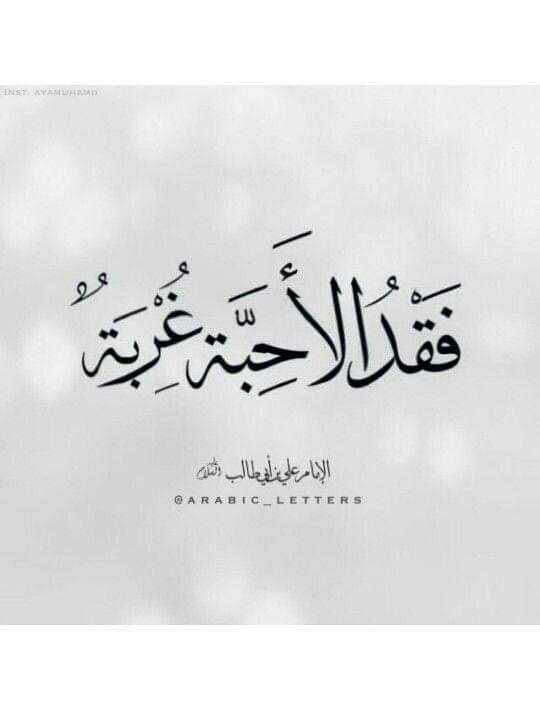 INST. AYAMUHAMD
فَقْدُ الأَحِبَّة غُرْبَةٌ
الإمام علي بن أبي طالب عليه السلام
@ARABIC_LETTERS